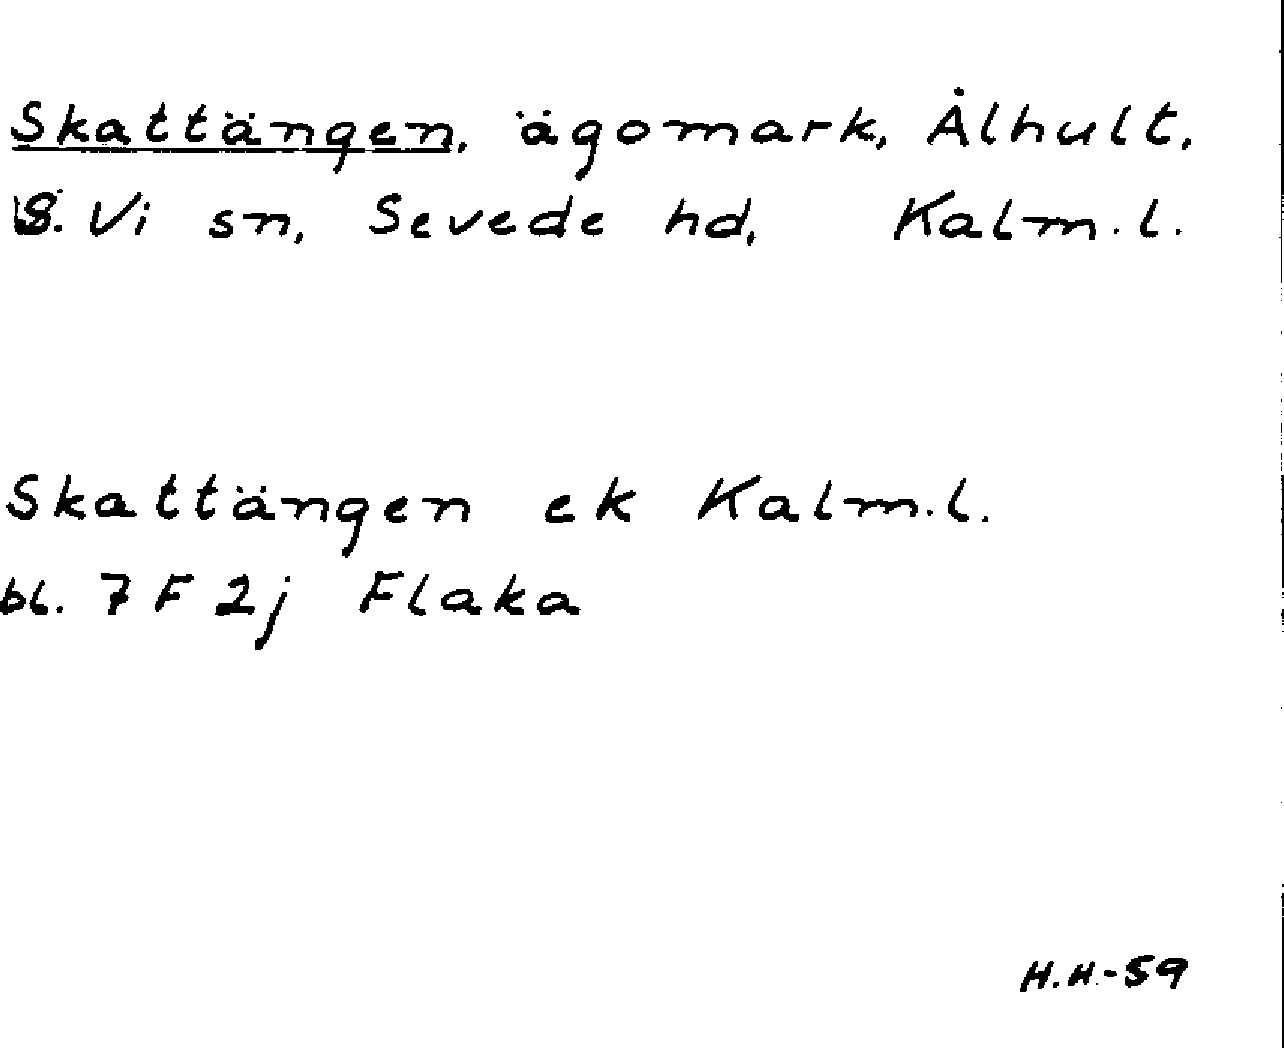 Skattängen, ägomark, Ålhult,
S. Vi sn, Sevede hd, Kalm. l.
Skattängen ek Kalm. l.
bl. 7 F 2j Flaka
H.H-59